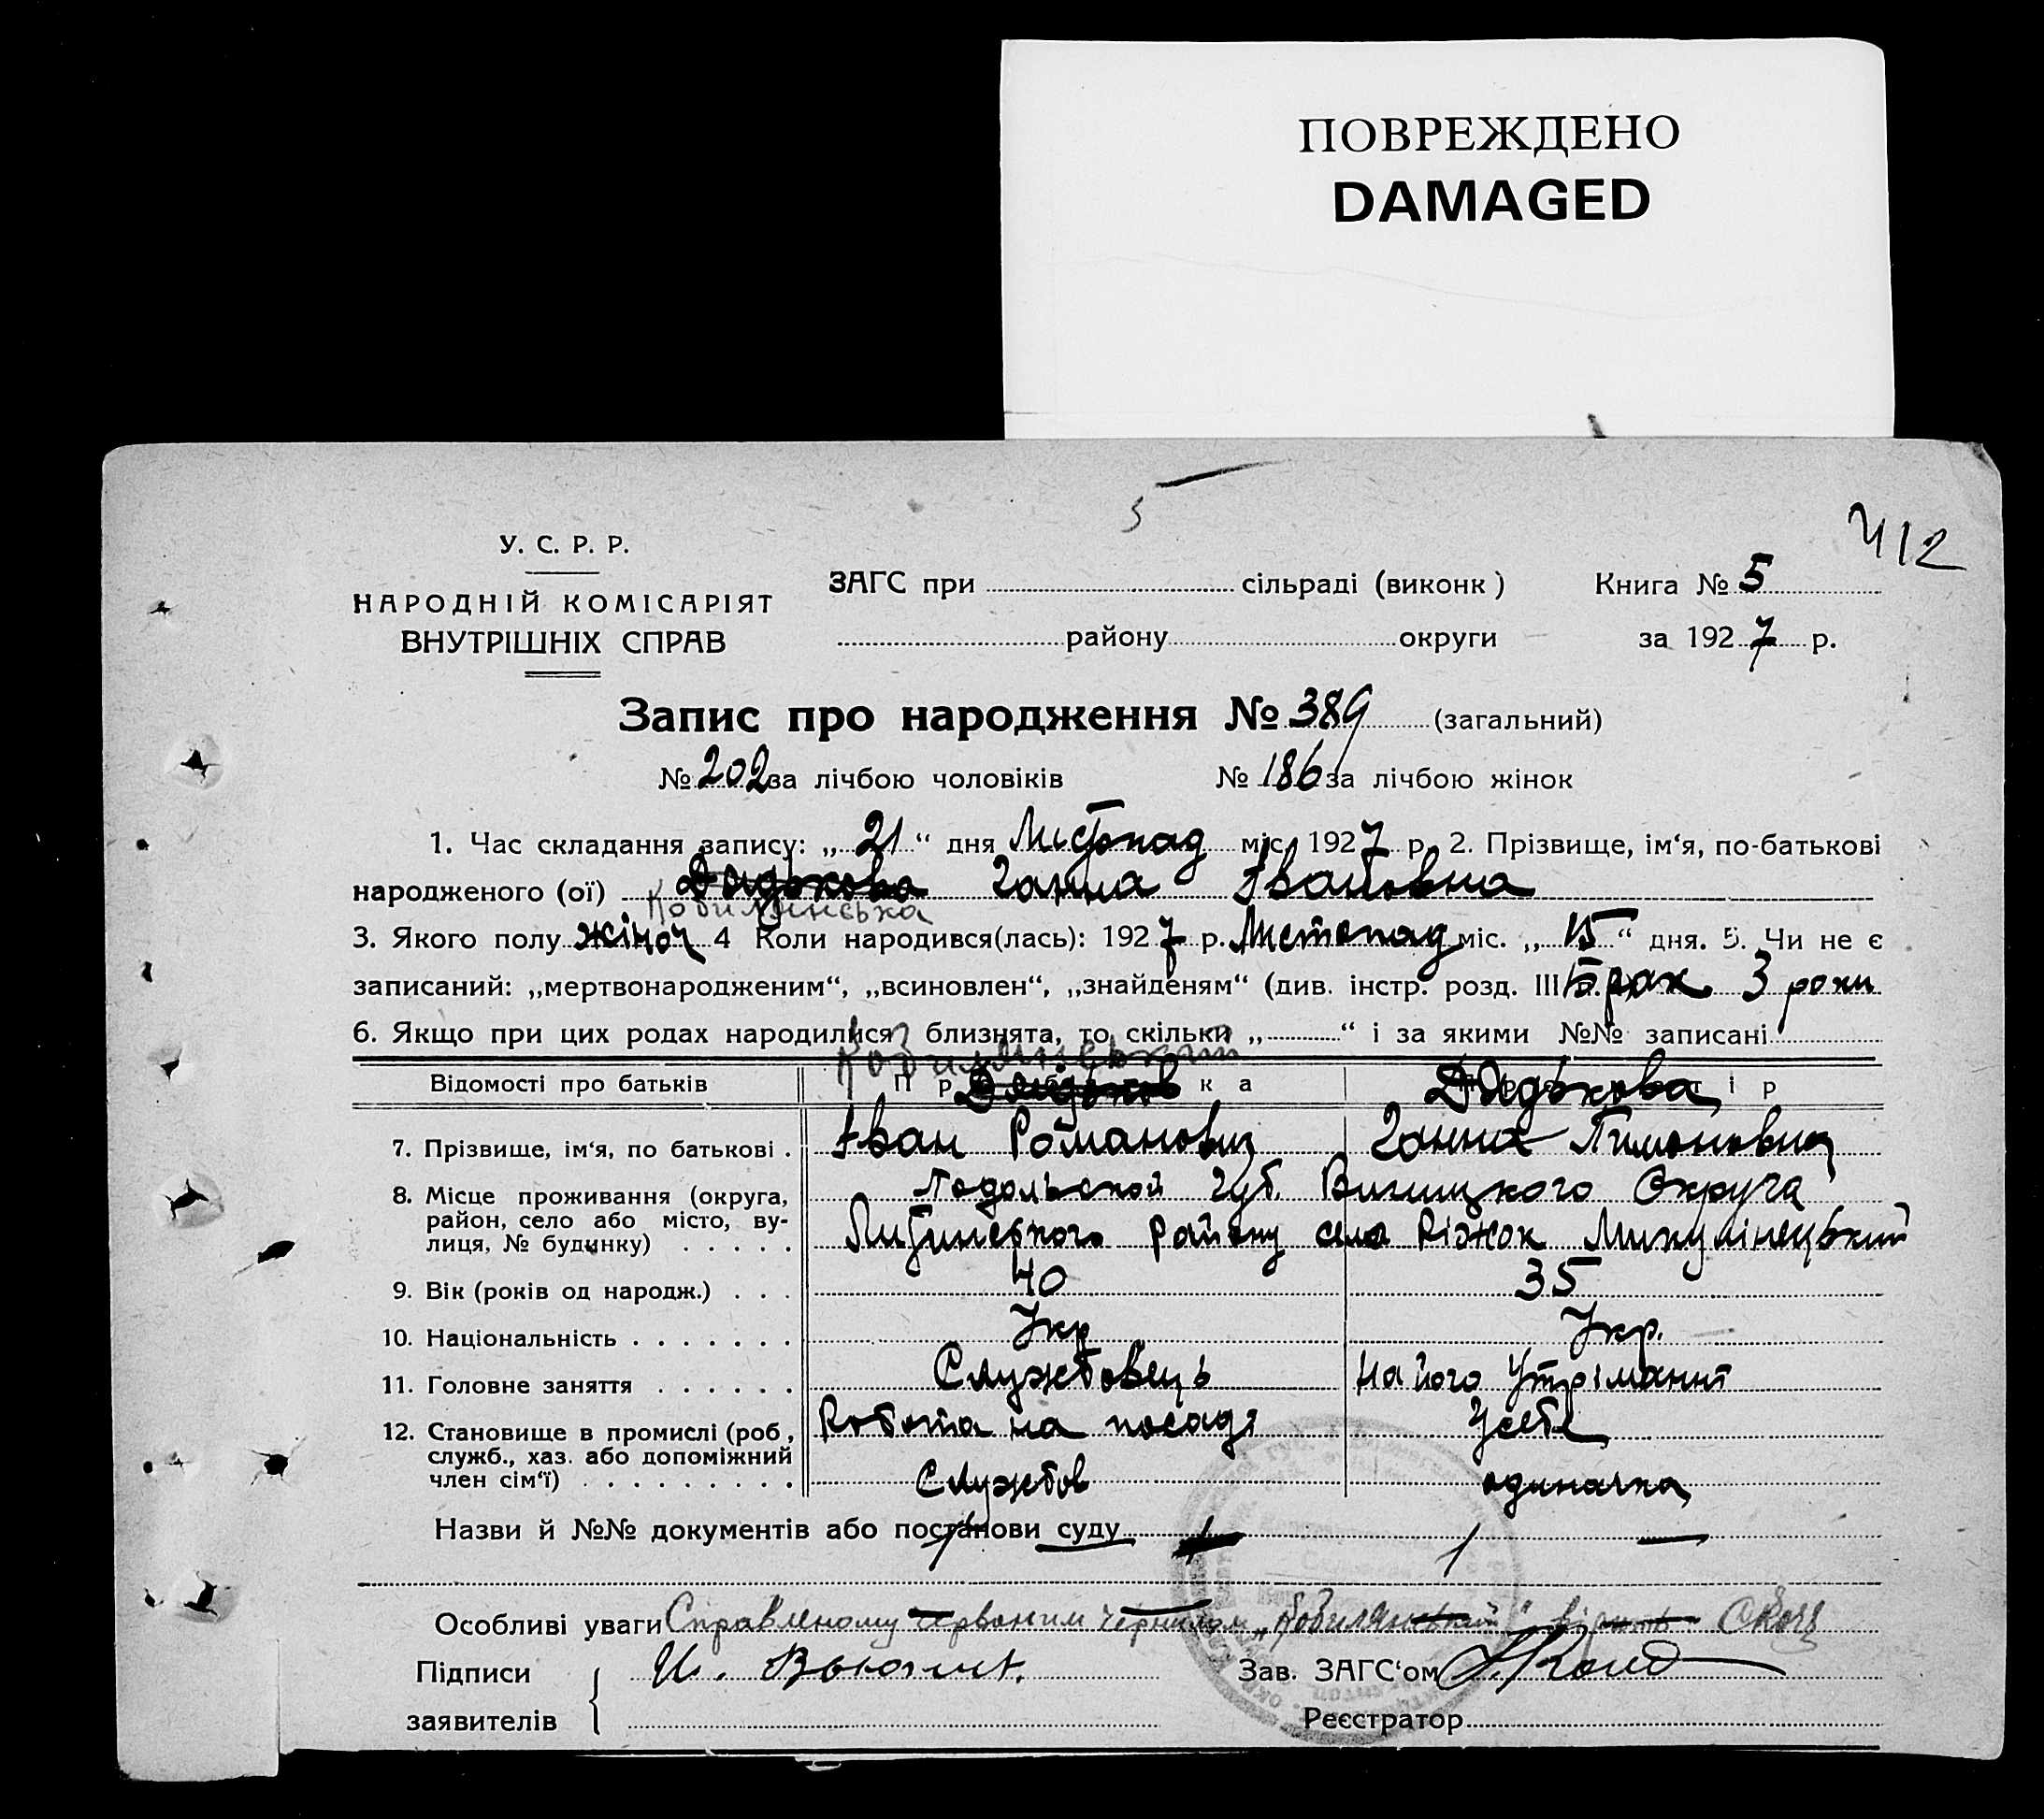 ПОВРЕЖДЕНО
DAMAGED
412
У. С. Р. Р.
НАРОДНІЙ КОМІСАРІЯТ
ВНУТРІШНІХ СПРАВ
ЗАГС при сільраді (виконк)
району округи
Книга № 5
за 1927 р.
Запис про народження № 389 (загальний)
№ 202 за лічбою чоловіків № 186 за лічбою жінок
1. Час складання запису: „21“ дня Листопад міс. 1927 р. 2. Прізвище, ім‘я, по-батькові
народженого (ої) Дядькова Ганна Івановна
Кобилянська
3. Якого полу жіноч 4 Коли народився(лась): 1927 р. Листопад міс. „15“ дня. 5. Чи не є
записаний: „мертвонародженим“, „всиновлен“, „знайденям“ (див. інстр. розд. III Брак 3 роки
6. Якщо при цих родах народилися близнята, то скільки „ “ і за якими №№ записані
Кобилянський
Відомості про батьків Про батька Дядьков Про матір Дядькова
7. Прізвище, ім‘я, по батькові . Іван Романович Ганна
8. Місце проживання (округа, район, село або місто, вулиця, № будинку) . . . . . Подольской губ. Виницкого Округа
району села Ріжок
9. Вік (років од народж.) . . . 40 35
10. Національність . . . . . . . Укр Укр.
11. Головне заняття . . . . . . Службовець На його утріманні
12. Становище в промислі (роб., служб., хаз. або допоміжний член сім‘ї) . . . . . . . . . Робота на посаді
Службов одиначка
Назви й №№ документів або постанови суду
Особливі уваги Справленому червоним чернилом „Кобилянський“ вірить
Підписи
заявителів
Зав. ЗАГС‘ом
Реєстратор